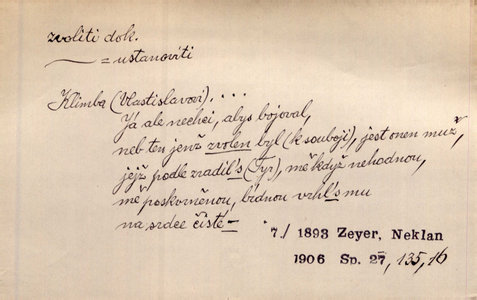 zvoliti dok.
~ = ustanoviti
Klimba (Vlastislavovi). . . .
Já ale nechci, abys bojoval,
neb ten jenž zvolen byl (k souboji), jest onen muž,
jejž podle zradil's (Tyr), mě když nehodnou,
mě poskvrněnou, bídnou vrhl's mu
na srdce čisté —
7./ 1893 Zeyer, Neklan
1906 Sp. 27, 135, 16